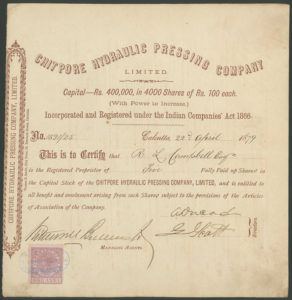 CHITPORE HYDRAULIC PRESSING COMPANY
LIMITED.
Capital—Rs. 400,000, in 4000 Shares of Rs. 100 each.
(With Power to Increase.)
Incorporated and Registered under the Indian Companies' Act 1866.
No. 1521/25 Calcutta, 22nd April 1879
This is to Certify that R. L. Campbell Esqr
is the Registered Proprietor of Five Fully Paid up Shares in
the Capital Stock of the CHITPORE HYDRAULIC PRESSING COMPANY, LIMITED, and is entitled to
all benefit and emolument arising from such Shares subject to the provisions of the Articles
of Association of the Company.
Managing Agents.
Directors.
CHITPORE HYDRAULIC PRESSING COMPANY, LIMITED.